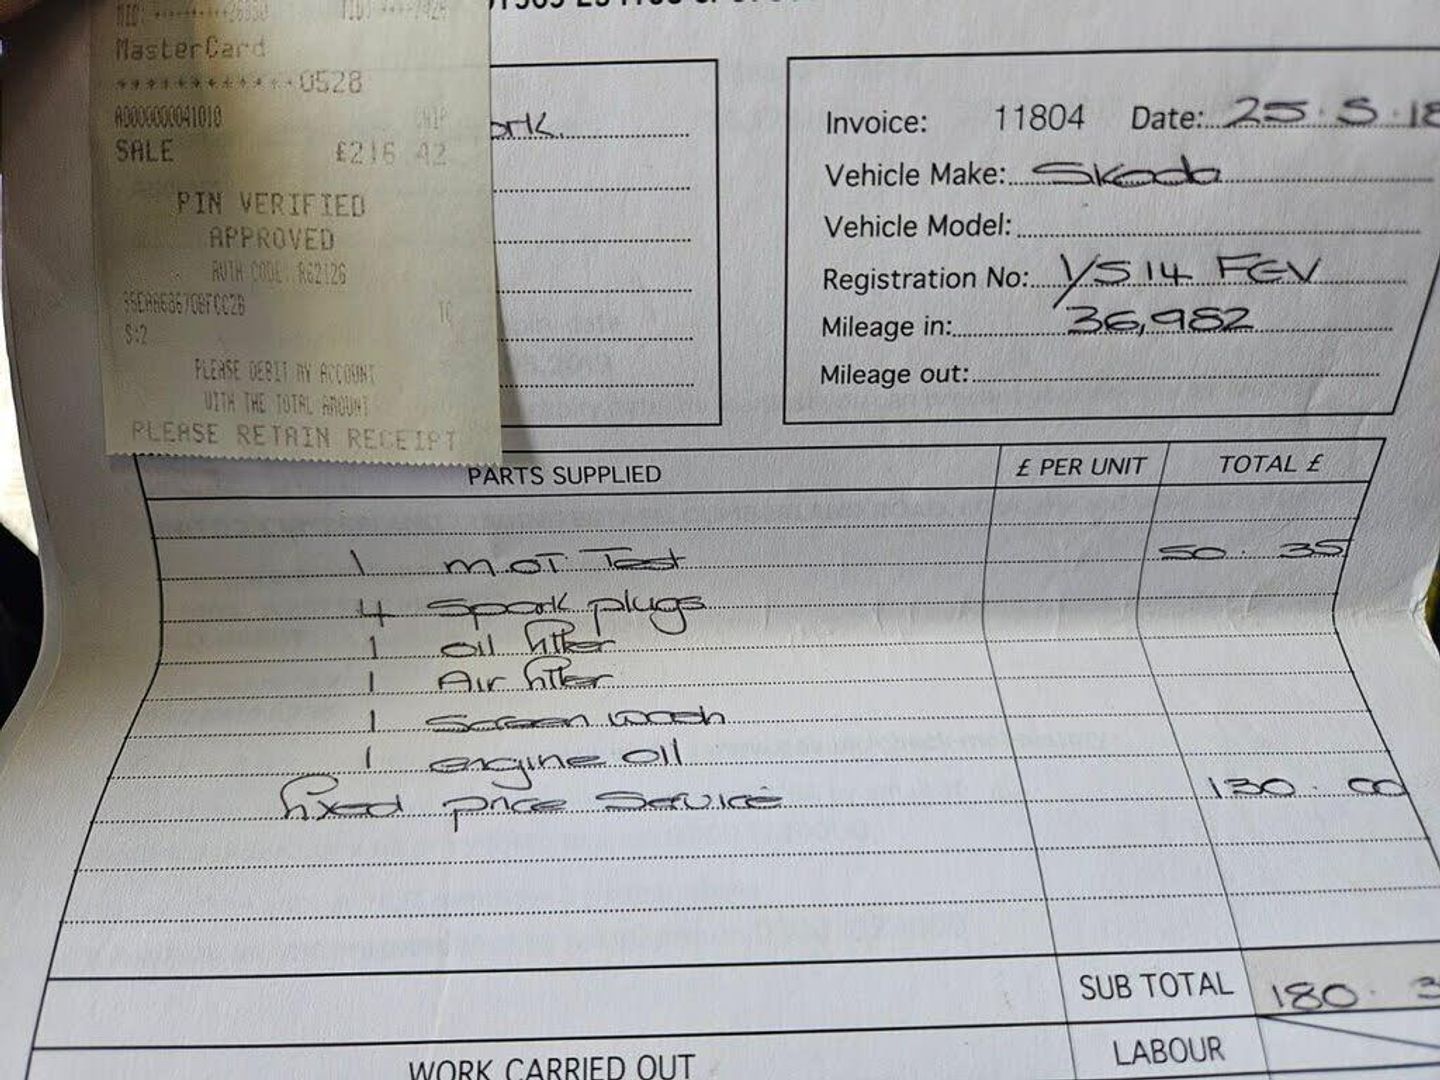 MasterCard
************0528
A0000000041010
SALE £216.42
PIN VERIFIED
APPROVED
AUTH CODE: R6212G
S:2 TC
PLEASE DEBIT MY ACCOUNT
WITH THE TOTAL AMOUNT
PLEASE RETAIN RECEIPT
Invoice: 11804 Date: 25.5.18
Vehicle Make: Skoda
Vehicle Model:
Registration No: YS14 FGV
Mileage in: 36,982
Mileage out:
PARTS SUPPLIED £ PER UNIT TOTAL £
1 M.O.T. Test 50.35
4 Spark plugs
1 oil filter
1 Air filter
1 Screen wash
1 engine oil
fixed price Service 130.00
SUB TOTAL 180.3
WORK CARRIED OUT LABOUR